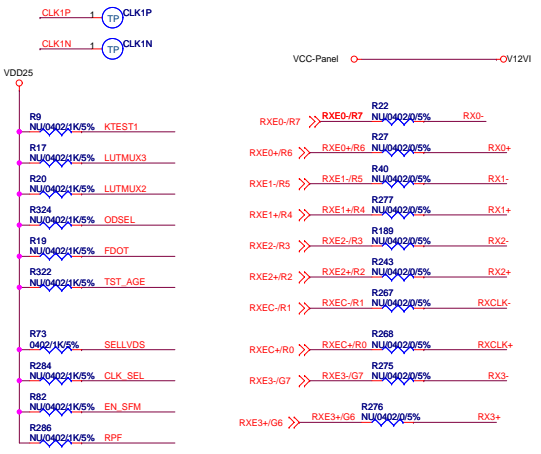 CLK1P 1 TP CLK1P
CLK1N 1 TP CLK1N
VCC-Panel V12VI
VDD25
R9
NU/0402/1K/5% KTEST1
R17
NU/0402/1K/5% LUTMUX3
R20
NU/0402/1K/5% LUTMUX2
R324
NU/0402/1K/5% ODSEL
R19
NU/0402/1K/5% FDOT
R322
NU/0402/1K/5% TST_AGE
R73
0402/1K/5% SELLVDS
R284
NU/0402/1K/5% CLK_SEL
R82
NU/0402/1K/5% EN_SFM
R286
NU/0402/1K/5% RPF
R22
RXE0-/R7 RXE0-/R7 NU/0402/0/5% RX0-
R27
RXE0+/R6 RXE0+/R6 NU/0402/0/5% RX0+
R40
RXE1-/R5 RXE1-/R5 NU/0402/0/5% RX1-
R277
RXE1+/R4 RXE1+/R4 NU/0402/0/5% RX1+
R189
RXE2-/R3 RXE2-/R3 NU/0402/0/5% RX2-
R243
RXE2+/R2 RXE2+/R2 NU/0402/0/5% RX2+
R267
RXEC-/R1 RXEC-/R1 NU/0402/0/5% RXCLK-
R268
RXEC+/R0 RXEC+/R0 NU/0402/0/5% RXCLK+
R275
RXE3-/G7 RXE3-/G7 NU/0402/0/5% RX3-
R276
RXE3+/G6 RXE3+/G6 NU/0402/0/5% RX3+